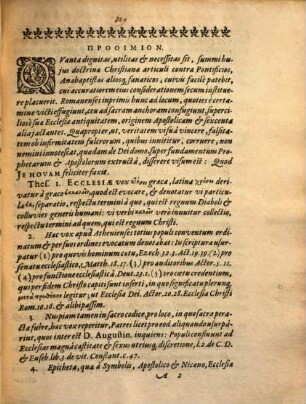 ΠΡΟΟΙΜΙΟΝ.
QVanta dignitas, utilitas & necessitas sit, summi hu-
jus doctrinæ Christianæ articuli contra Pontificios,
Anabaptistas aliosq; fanaticos, cuivis facile patebit,
cui accuratiorem ejus considerationem secum institue-
re placuerit. Romanenses inprimis hunc ad locum, quoties certa-
mine victi effugiunt, ceu ad sacram anchoram confugiunt, superci-
liose sua Ecclesiæ antiquitatem, originem Apostolicam & sexcenta
alia jactantes. Quapropter ut, veritatem visu à vincere, falsita-
tem ob infirmitatem fulcrorum, quibus innititur, corruere, non
nemini innotescat, quædam de Dei domo, super fundamentum Pro-
phetarum & Apostolorum extructâ, disserere visum est: Quod
JEHOVAH feliciter faxit.
Thes. 1. ECCLESIÆ vox græca, latina
derivatur à græco quod est evocare, & denotat
separatio, respectu termini à quo, qui est regnum Diaboli &
colluvies generis humani: vi verbi verò innuitur collectio,
respectu termini ad quem, qui est regnum Christi.
2. Hæc vox apud Athenienses totius populi conventum ordi-
natum & per suos ordines evocatum denotabat: In scriptura usur-
patur (1) pro quovis hominum cœtu, Esech. 32. 23. Act. 19. 39. (2) pro
senatu ecclesiastico, Matth. 18. 17. (3.) pro auditoribus Actor. 5. 11.
(4) pro functione ecclesiastica. Deut. 23. 1. (5) pro cœtu credentium,
qui per fidem Christo capiti sunt inserti, in quo significatu plerumq;
legitur; ut Ecclesia Dei. Actor. 20. 28. Ecclesia Christi
Rom. 16. 16. & alibi passim.
3. Nuspiam tamen in sacro codice, pro loco, in quo sacra perac-
ta fuere, hæc vox reperitur, Patres licet pro eo aliquando usurpâ-
rint, quos inter est D. Augustin. inquiens: Populi confluunt ad
Ecclesias magna castitate & sexus utriusq; discretione, l. 2. de C. D.
& Euseb. lib. 3 de vit. Constant. c. 47.
4. Epitheta, quæ à Symbolis, Apostolico & Nicæno, Ecclesiæ
A 2